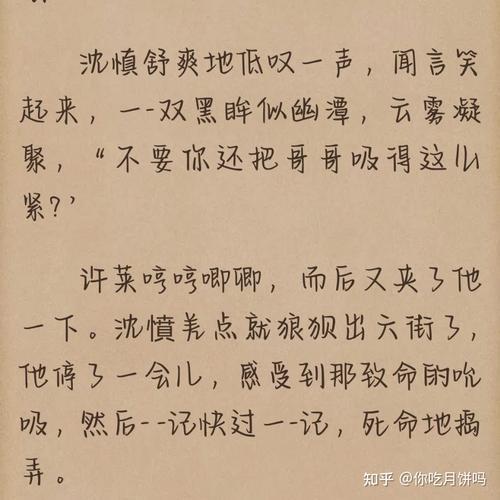 沈慎舒爽地低叹一声，闻言笑
起来，一-双黑眸似幽潭，云雾凝
聚，“不要你还把哥哥吸得这么
紧？’
许莱哼哼唧唧，而后又夹了他
一下。沈愤差点就狼狈出六街了，
他停了一会儿，感受到那致命的吮
吸，然后--记快过一-记，死命地捣
弄。
知乎 @你吃月饼吗